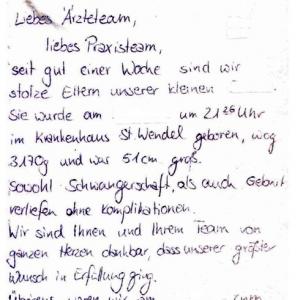 Liebes Ärzteteam,
liebes Praxisteam,
seit gut einer Woche sind wir
stolze Eltern unserer kleinen
Sie wurde am um 21 26 Uhr
im Krankenhaus St. Wendel geboren, wog
3170g und war 51cm groß.
Sowohl Schwangerschaft, als auch Geburt
verliefen ohne Komplikationen.
Wir sind Ihnen und Ihrem Team von
ganzen Herzen dankbar, dass unserer größter
Wunsch in Erfüllung ging.
waren wir am